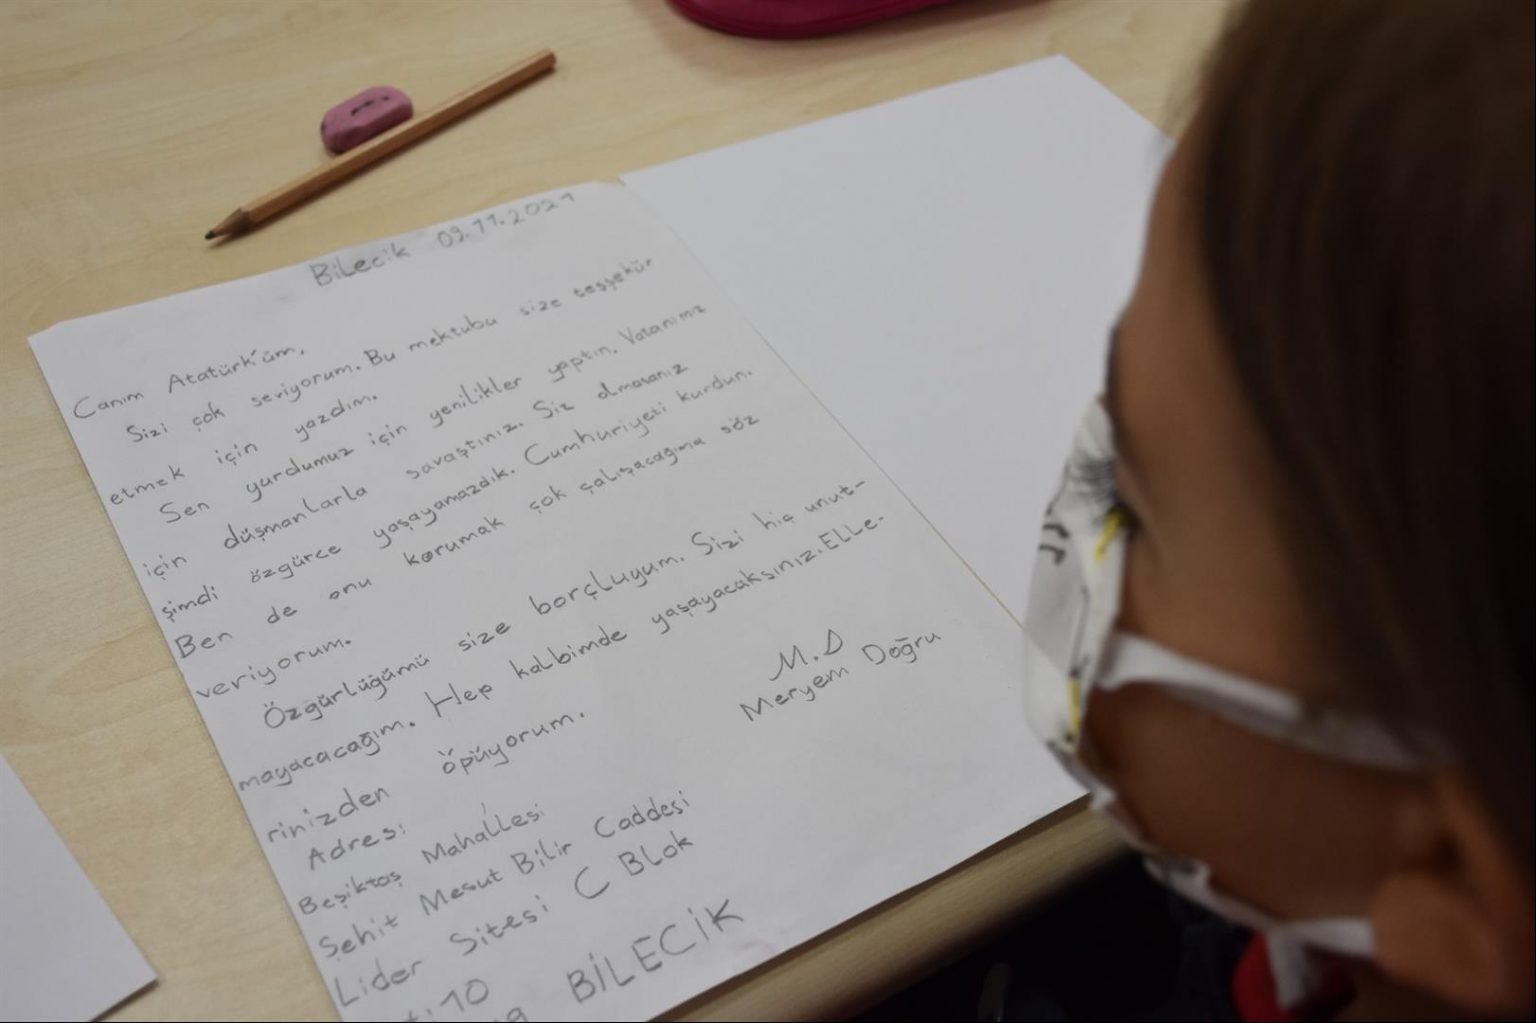 Bilecik 09.11.2021
Canım Atatürk'üm,
Sizi çok seviyorum. Bu mektubu size teşşekür
etmek için yazdım.
Sen yurdumuz için yenilikler yaptın. Vatanımız
için düşmanlarla savaştınız. Siz olmasanız
şimdi özgürce yaşayamazdık. Cumhuriyeti kurdun.
Ben de onu korumak çok çalışacağıma söz
veriyorum.
Özgürlüğümü size borçluyum. Sizi hiç unut-
mayacacağım. Hep kalbimde yaşayacaksınız. Elle-
rinizden öpüyorum.
M.D
Meryem Doğru
Adres:
Beşiktaş Mahallesi
Şehit Mesut Bilir Caddesi
Lider Sitesi C Blok
10
BİLECİK